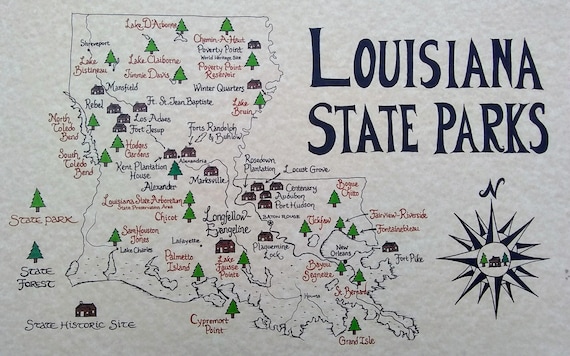 LOUISIANA
STATE PARKS
N
Lake D'Arbonne
Chemin-A-Haut
Shreveport
Poverty Point
World Heritage Site
Lake
Bistineau
Lake Claiborne
Jimmie Davis
Poverty Point
Reservoir
Mansfield
Winter Quarters
Rebel
Ft. St. Jean Baptiste
Lake
Bruin
Los Adaes
Fort Jesup
North
Toledo
Bend
Forts Randolph
& Buhlow
Hodges
Gardens
South
Toledo
Bend
Kent Plantation
House
Alexandria
Rosedown
Plantation
Locust Grove
Alexander
Marksville
Centenary
Audubon
Port Hudson
Bogue
Chitto
Louisiana State Arboretum
State Preservation Area
Chicot
BATON ROUGE
Tickfaw
Fairview-Riverside
Fontainebleau
STATE PARK
Longfellow-
Evangeline
Sam Houston
Jones
Lafayette
Plaquemine
Lock
New
Orleans
Fort Pike
Lake Charles
STATE
FOREST
Palmetto
Island
Lake
Fausse
Pointe
Bayou
Segnette
St. Bernard
Houma
STATE HISTORIC SITE
Cypremort
Point
Grand Isle